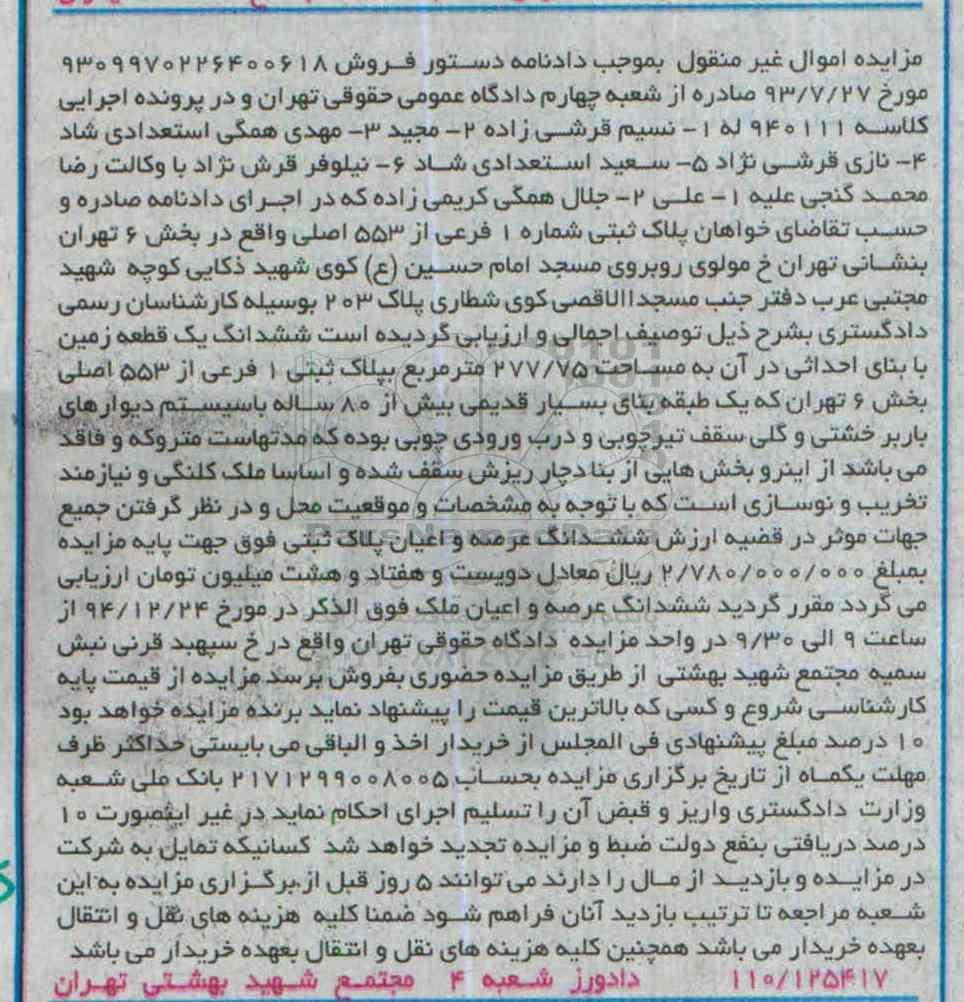 مزایده اموال غیر منقول بموجب دادنامه دستور فروش ۹۳۰۹۹۷۰۲۲۶۴۰۰۶۱۸
مورخ ۹۳/۷/۲۷ صادره از شعبه چهارم دادگاه عمومی حقوقی تهران و در پرونده اجرایی
کلاسه ۹۴۰۱۱۱ له ۱- نسیم قرشی زاده ۲- مجید ۳- مهدی همگی استعدادی شاد
۴- نازی قرشی نژاد ۵- سعید استعدادی شاد ۶- نیلوفر قرش نژاد با وکالت رضا
محمد گنجی علیه ۱- علی ۲- جلال همگی کریمی زاده که در اجرای دادنامه صادره و
حسب تقاضای خواهان پلاک ثبتی شماره ۱ فرعی از ۵۵۳ اصلی واقع در بخش ۶ تهران
بنشانی تهران خ مولوی روبروی مسجد امام حسین (ع) کوی شهید ذکایی کوچه شهید
مجتبی عرب دفتر جنب مسجداالاقصی کوی شطاری پلاک ۲۰۳ بوسیله کارشناسان رسمی
دادگستری بشرح ذیل توصیف اجمالی و ارزیابی گردیده است ششدانگ یک قطعه زمین
با بنای احداثی در آن به مساحت ۲۷۷/۷۵ مترمربع بپلاک ثبتی ۱ فرعی از ۵۵۳ اصلی
بخش ۶ تهران که یک طبقه بنای بسیار قدیمی بیش از ۸۰ ساله باسیستم دیوارهای
باربر خشتی و گلی سقف تیرچوبی و درب ورودی چوبی بوده که مدتهاست متروکه و فاقد
می باشد از اینرو بخش هایی از بنا دچار ریزش سقف شده و اساسا ملک کلنگی و نیازمند
تخریب و نوسازی است که با توجه به مشخصات و موقعیت محل و در نظر گرفتن جمیع
جهات موثر در قضیه ارزش ششدانگ عرصه و اعیان پلاک ثبتی فوق جهت پایه مزایده
بمبلغ ۲/۷۸۰/۰۰۰/۰۰۰ ریال معادل دویست و هفتاد و هشت میلیون تومان ارزیابی
می گردد مقرر گردید ششدانگ عرصه و اعیان ملک فوق الذکر در مورخ ۹۴/۱۲/۲۴ از
ساعت ۹ الی ۹/۳۰ در واحد مزایده دادگاه حقوقی تهران واقع در خ سپهبد قرنی نبش
سمیه مجتمع شهید بهشتی از طریق مزایده حضوری بفروش برسد مزایده از قیمت پایه
کارشناسی شروع و کسی که بالاترین قیمت را پیشنهاد نماید برنده مزایده خواهد بود
۱۰ درصد مبلغ پیشنهادی فی المجلس از خریدار اخذ و الباقی می بایستی حداکثر ظرف
مهلت یکماه از تاریخ برگزاری مزایده بحساب ۲۱۷۱۲۹۹۰۰۸۰۰۵ بانک ملی شعبه
وزارت دادگستری واریز و قبض آن را تسلیم اجرای احکام نماید در غیر اینصورت ۱۰
درصد دریافتی بنفع دولت ضبط و مزایده تجدید خواهد شد کسانیکه تمایل به شرکت
در مزایده و بازدید از مال را دارند می توانند ۵ روز قبل از برگزاری مزایده به این
شعبه مراجعه تا ترتیب بازدید آنان فراهم شود ضمنا کلیه هزینه های نقل و انتقال
بعهده خریدار می باشد همچنین کلیه هزینه های نقل و انتقال بعهده خریدار می باشد
۱۱۰/۱۲۵۴۱۷ دادورز شعبه ۴ مجتمع شهید بهشتی تهران